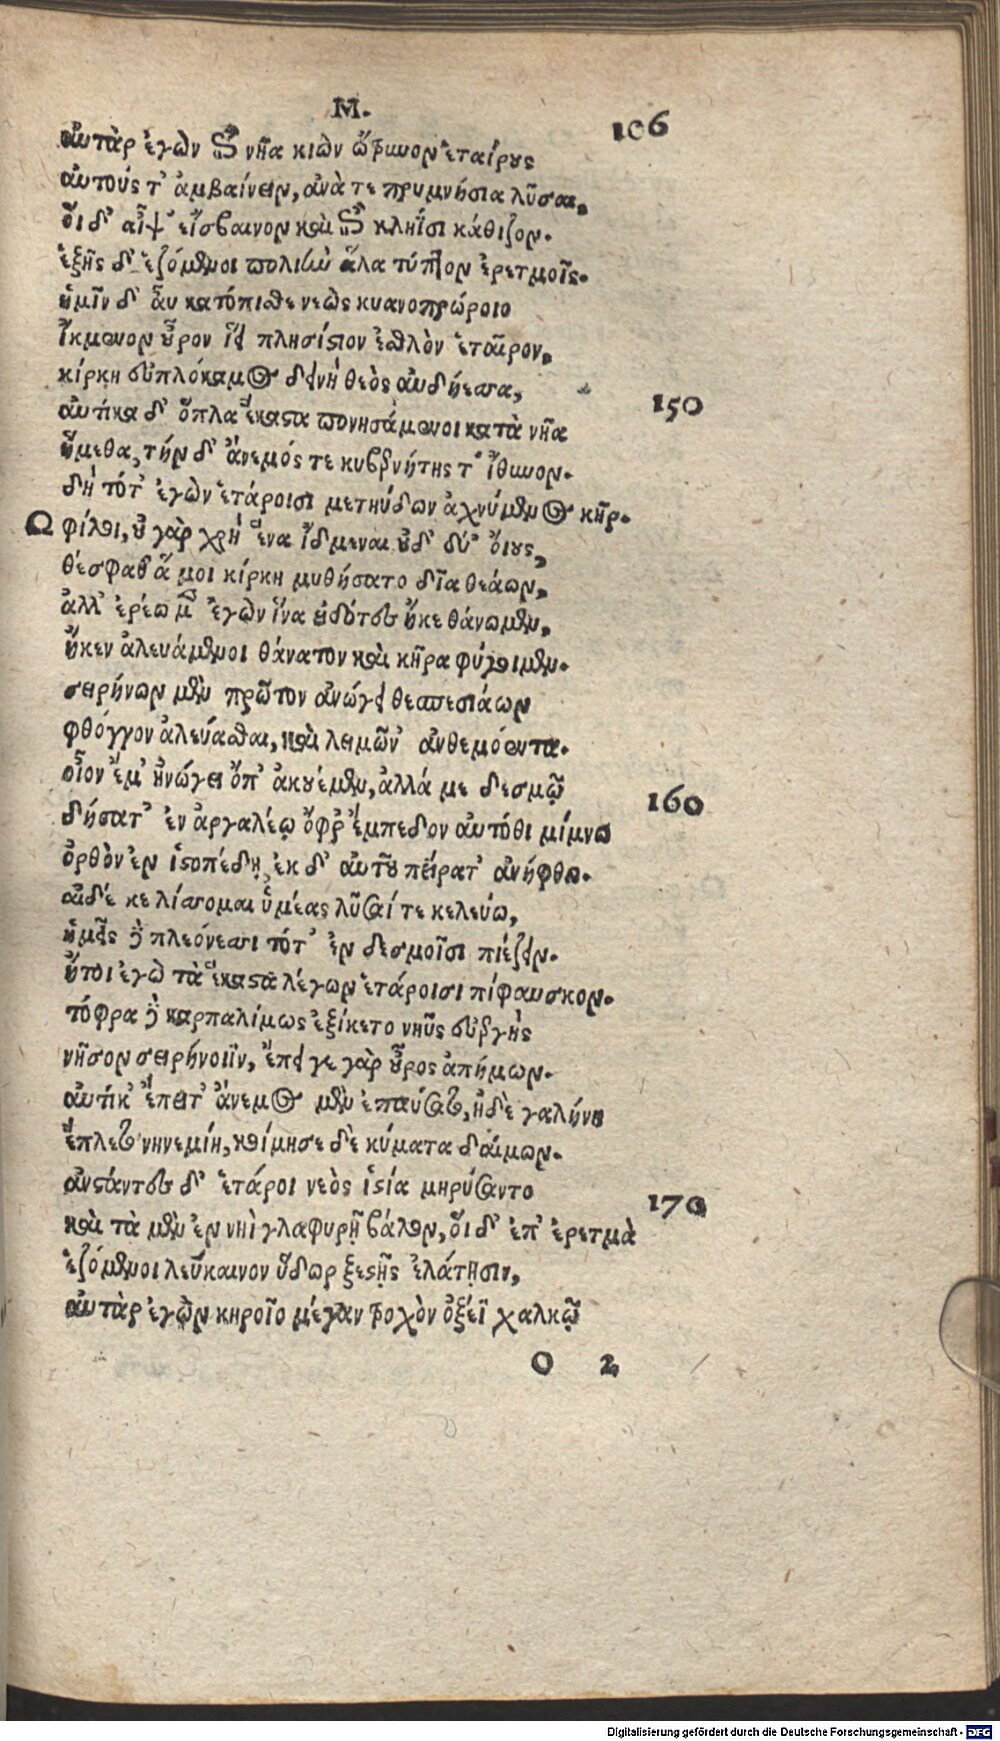 M.
106
αὐτὰρ ἐγὼν ἐπὶ νῆα κιὼν ὤτρυνον ἑταίρους
αὐτούς τ' ἀμβαίνειν, ἀνά τε πρυμνήσια λῦσαι,
οἳ δ' αἶψ' εἴσβαινον καὶ ἐπὶ κληῗσι κάθιζον.
ἑξῆς δ' ἑζόμενοι πολιὴν ἅλα τύπτον ἐρετμοῖς.
ἡμῖν δ' αὖ κατόπισθε νεὼς κυανοπρώροιο
ἴκμενον οὖρον ἵει πλησίστιον ἐσθλὸν ἑταῖρον,
κίρκη ἐϋπλόκαμος δεινὴ θεὸς αὐδήεσσα,
150
αὐτίκα δ' ὅπλα ἕκαστα πονησάμενοι κατὰ νῆα
ἥμεθα, τὴν δ' ἄνεμός τε κυβερνήτης τ' ἴθυνον.
δὴ τότ' ἐγὼν ἑτάροισι μετηύδων ἀχνύμενος κῆρ.
Ω φίλοι, οὐ γὰρ χρὴ ἕνα ἴδμεναι οὐδὲ δύ' οἴους,
θέσφαθ' ἅ μοι κίρκη μυθήσατο δῖα θεάων,
ἀλλ' ἐρέω μὲν ἐγὼν ἵνα εἰδότες ἤκε θάνωμεν,
ἤκεν ἀλευάμενοι θάνατον καὶ κῆρα φύγοιμεν.
σειρήνων μὲν πρῶτον ἀνώγει θεσπεσιάων
φθόγγον ἀλεύασθαι, καὶ λειμῶν' ἀνθεμόεντα.
οἶον ἔμ' ἠνώγει ὄπ' ἀκουέμεν, ἀλλά με δεσμῷ
160
δήσατ' ἐν ἀργαλέῳ ὄφρ' ἔμπεδον αὐτόθι μίμνω
ὀρθὸν ἐν ἱστοπέδῃ, ἐκ δ' αὐτοῦ πείρατ' ἀνήφθω.
αἰδέ κε λίσσομαι ὑμέας λῦσαί τε κελεύω,
ὑμεῖς δὲ πλεόνεσσι τότ' ἐν δεσμοῖσι πιέζειν.
ἤτοι ἐγὼ τὰ ἕκαστα λέγων ἑτάροισι πίφαυσκον.
τόφρα δὲ καρπαλίμως ἐξίκετο νηῦς εὐεργὴς
νῆσον σειρήνοιϊν, ἔπειγε γὰρ οὖρος ἀπήμων.
αὐτίκ' ἔπειτ' ἄνεμος μὲν ἐπαύσατο, ἠδὲ γαλήνη
ἔπλετο νηνεμίη, κοίμησε δὲ κύματα δαίμων.
ἀνστάντες δ' ἕταροι νεὸς ἱστία μηρύσαντο
170
καὶ τὰ μὲν ἐν νηῒ γλαφυρῇ βάλον, οἳ δ' ἐπ' ἐρετμὰ
ἑζόμενοι λεύκαινον ὕδωρ ξεστῇς ἐλάτῃσιν,
αὐτὰρ ἐγὼν κηροῖο μέγαν τροχὸν ὀξέϊ χαλκῷ
O 2
Digitalisierung gefördert durch die Deutsche Forschungsgemeinschaft - DFG